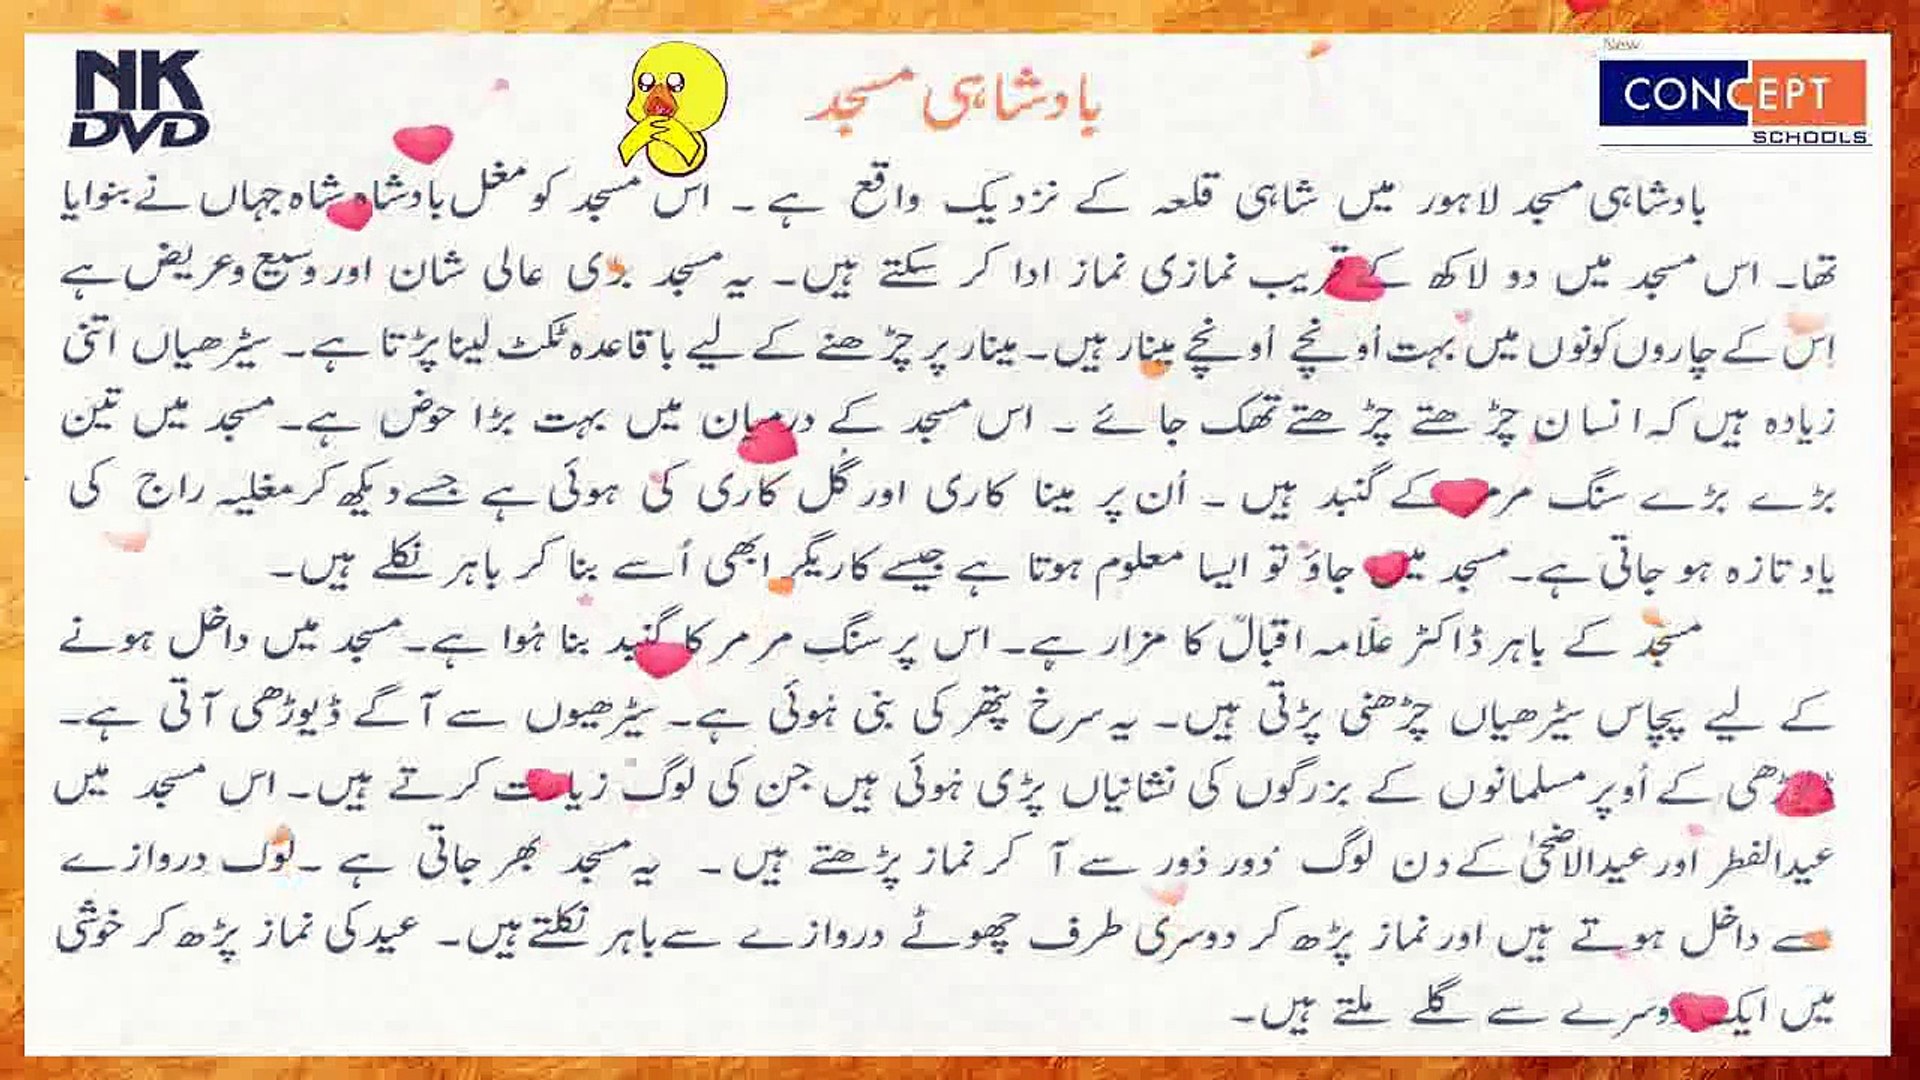 NK
DVD
بادشاہی مسجد
New
CONCEPT
SCHOOLS
بادشاہی مسجد لاہور میں شاہی قلعہ کے نزدیک واقع ہے ۔ اس مسجد کو مغل بادشاہ شاہ جہاں نے بنوایا
تھا۔ اس مسجد میں دو لاکھ کے قریب نمازی نماز ادا کر سکتے ہیں۔ یہ مسجد بڑی عالی شان اور وسیع و عریض ہے
اس کے چاروں کونوں میں بہت اُونچے اُونچے مینار ہیں۔ مینار پر چڑھنے کے لیے باقاعدہ ٹکٹ لینا پڑتا ہے۔ سیڑھیاں اتنی
زیادہ ہیں کہ انسان چڑھتے چڑھتے تھک جائے ۔ اس مسجد کے درمیان میں بہت بڑا حوض ہے۔ مسجد میں تین
بڑے بڑے سنگ مرمر کے گنبد ہیں ۔ اُن پر مینا کاری اور گُل کاری کی ہوئی ہے جسے دیکھ کر مغلیہ راج کی
یاد تازہ ہو جاتی ہے۔ مسجد میں جاؤ تو ایسا معلوم ہوتا ہے جیسے کاریگر ابھی اُسے بنا کر باہر نکلے ہیں۔
مسجد کے باہر ڈاکٹر علّامہ اقبالؒ کا مزار ہے۔ اس پر سنگ مرمر کا گنبد بنا ہُوا ہے۔ مسجد میں داخل ہونے
کے لیے پچاس سیڑھیاں چڑھنی پڑتی ہیں۔ یہ سرخ پتھر کی بنی ہُوئی ہے۔ سیڑھیوں سے آگے ڈیوڑھی آتی ہے۔
ڈیوڑھی کے اُوپر مسلمانوں کے بزرگوں کی نشانیاں پڑی ہُوئی ہیں جن کی لوگ زیارت کرتے ہیں۔ اس مسجد میں
عیدالفطر اور عیدالاضحیٰ کے دن لوگ دُور دُور سے آ کر نماز پڑھتے ہیں۔ یہ مسجد بھر جاتی ہے ۔ لوگ دروازے
سے داخل ہوتے ہیں اور نماز پڑھ کر دوسری طرف چھوٹے دروازے سے باہر نکلتے ہیں۔ عید کی نماز پڑھ کر خوشی
میں ایک دوسرے سے گلے ملتے ہیں۔